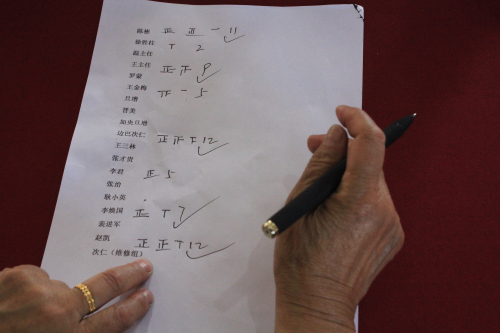 陈彬 正 正 一 11
丅 2
王主任 正 9
罗蒙
王金梅 5
旦增
普美
加央旦增
边巴次仁 正 正 丅 12
王三林
张才贵
李君 正 5
张治
耿小英
李焕国 正 丅 7
裴进军
赵凯 正 正 丅 12
次仁（维修组）